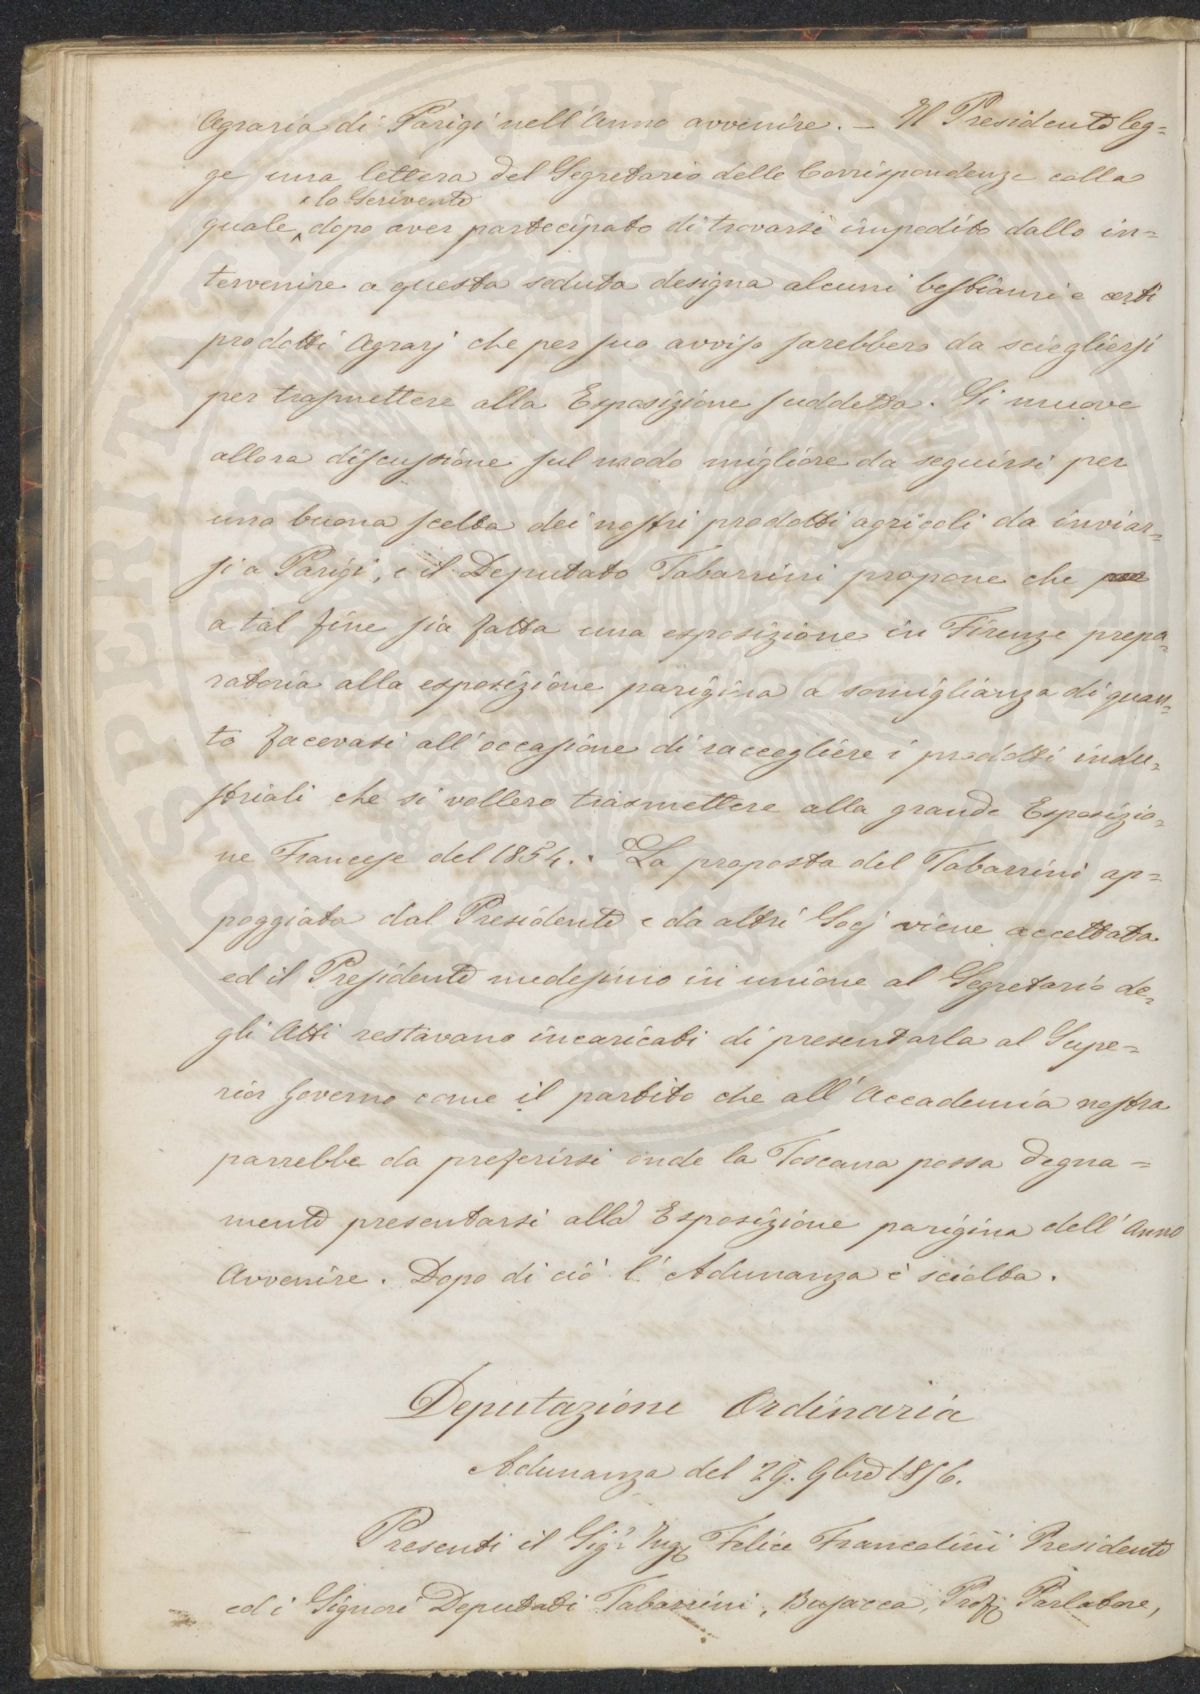 Agraria di Parigi nell'Anno avvenire. — Il Presidente leg=
ge una lettera del Segretario delle Corrispondenze colla
lo Scrivente
quale, dopo aver partecipato di trovarsi impedito dallo in=
tervenire a questa seduta designa alcuni bestiami e certi
prodotti Agrarj che per suo avviso sarebbero da sciegliersi
per trasmettere alla Esposizione suddetta. Si muove
allora discussione sul modo migliore da seguirsi per
una buona scelta dei nostri prodotti agricoli da inviar=
si a Parigi, e il Deputato Tabarrini propone che
a tal fine sia fatta una esposizione in Firenze prepa=
ratoria alla esposizione parigina a somiglianza di quan=
to facevasi all'occasione di raccogliere i prodotti indu=
striali che si vollero trasmettere alla grande Esposizio=
ne Francese del 1854. La proposta del Tabarrini ap=
poggiata dal Presidente e da altri Socj viene accettata
ed il Presidente medesimo in unione al Segretario de=
gli Atti restavano incaricati di presentarla al Supe=
rior Governo come il partito che all'Accademia nostra
parrebbe da preferirsi onde la Toscana possa degna=
mente presentarsi alla Esposizione parigina dell'Anno
Avvenire. Dopo di ciò l'Adunanza è sciolta.
Deputazione Ordinaria
Adunanza del 29. 9bre 1856.
Presenti il Sigr. Ing. Felice Francolini Presidente
ed i Signori Deputati Tabarrini, Busacca, Prof. Parlatore,